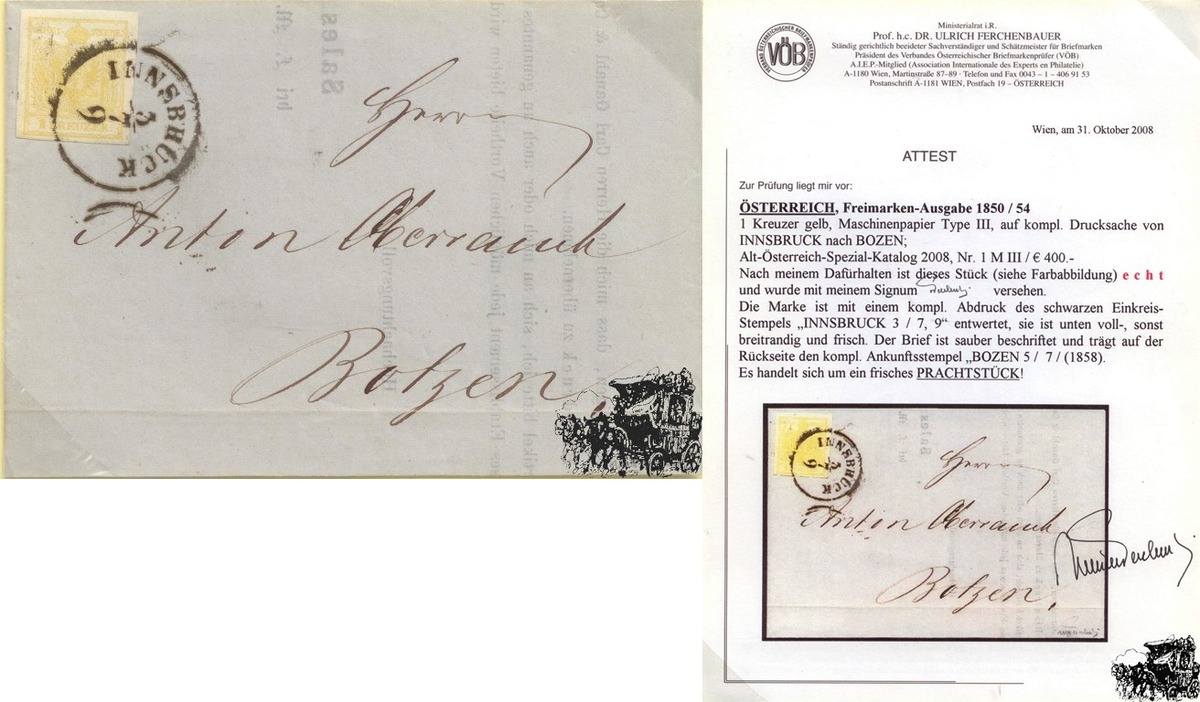 INNSBRUCK
3
7
9
Herrn
Anton Oberrauch
Botzen.
Sales
bei J. M.
VERBAND ÖSTERREICHISCHER BRIEFMARKENPRÜFER
VÖB
Ministerialrat i.R.
Prof. h.c. DR. ULRICH FERCHENBAUER
Ständig gerichtlich beeideter Sachverständiger und Schätzmeister für Briefmarken
Präsident des Verbandes Österreichischer Briefmarkenprüfer (VÖB)
A.I.E.P.-Mitglied (Association Internationale des Experts en Philatelie)
A-1180 Wien, Martinstraße 87–89 · Telefon und Fax 0043 – 1 – 406 91 53
Postanschrift A-1181 WIEN, Postfach 19 – ÖSTERREICH
Wien, am 31. Oktober 2008
ATTEST
Zur Prüfung liegt mir vor:
ÖSTERREICH, Freimarken-Ausgabe 1850 / 54
1 Kreuzer gelb, Maschinenpapier Type III, auf kompl. Drucksache von
INNSBRUCK nach BOZEN;
Alt-Österreich-Spezial-Katalog 2008, Nr. 1 M III / € 400.-
Nach meinem Dafürhalten ist dieses Stück (siehe Farbabbildung) echt
und wurde mit meinem Signum versehen.
Die Marke ist mit einem kompl. Abdruck des schwarzen Einkreis-
Stempels „INNSBRUCK 3 / 7, 9“ entwertet, sie ist unten voll-, sonst
breitrandig und frisch. Der Brief ist sauber beschriftet und trägt auf der
Rückseite den kompl. Ankunftsstempel „BOZEN 5 / 7 / (1858).
Es handelt sich um ein frisches PRACHTSTÜCK!
INNSBRUCK
3
7
9
Herrn
Anton Oberrauch
Botzen.